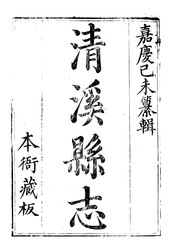 嘉慶己未纂輯
清溪縣志
本衙藏板